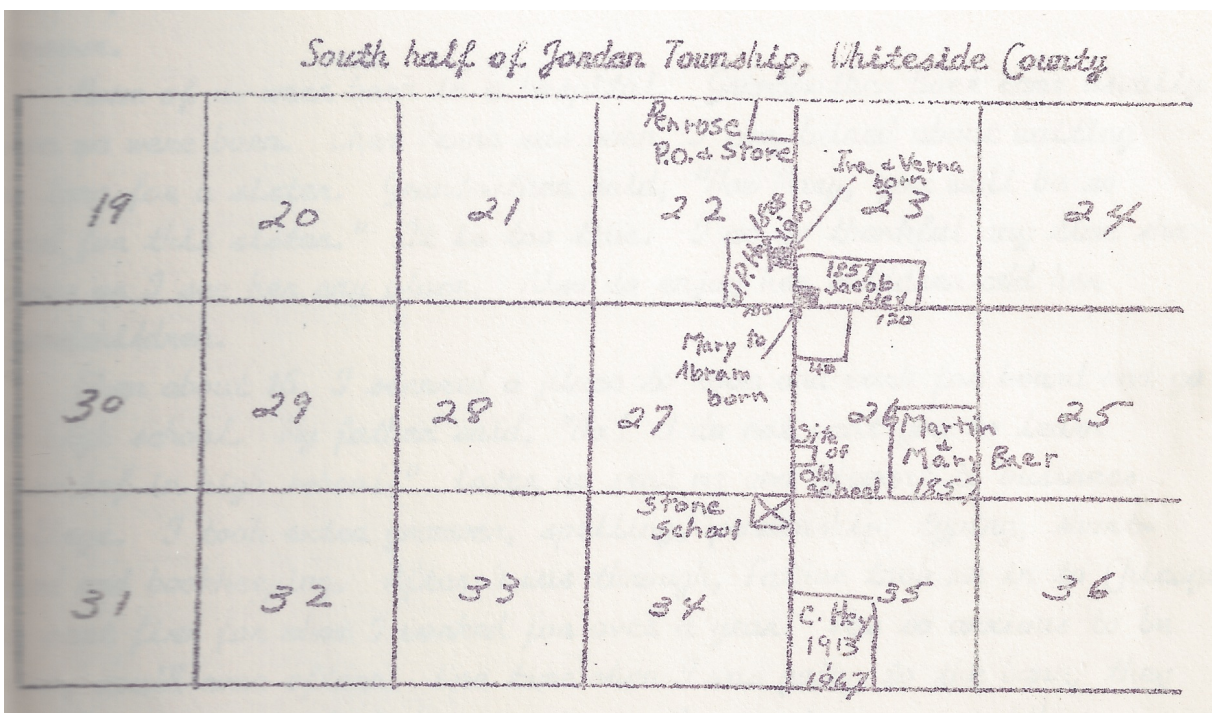 South half of Jordan Township, Whiteside County
Penrose
P.O. & Store
Ira & Verna
born
19
20
21
22
23
24
J.P.H.
1857
Jacob
Hey
120
Mary to
Abram
born
40
30
29
28
27
26
25
Site
of
Old
School
Martin
&
Mary Baer
1857
Stone
School
31
32
33
34
35
36
C. Hey
1913
1967